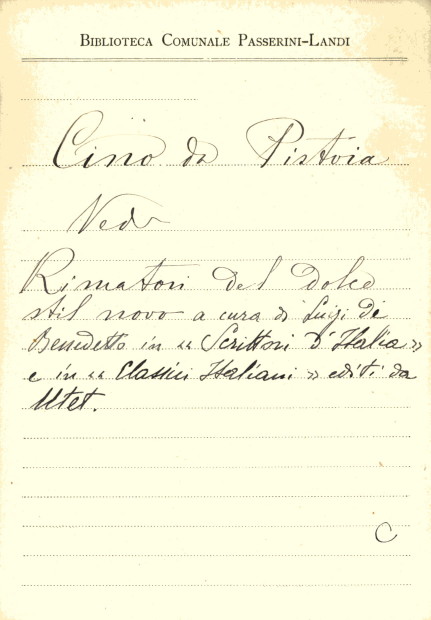 BIBLIOTECA COMUNALE PASSERINI-LANDI
Cino da Pistoia
Vedi
Rimatori del dolce
stil novo a cura di Luigi di
Benedetto in « Scrittori D'Italia »
e in « Classici Italiani » editi da
Utet.
C